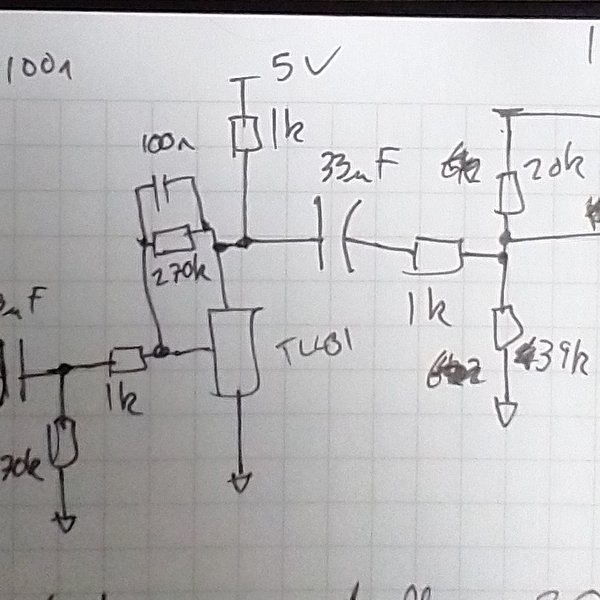 100n
5V
1k
100n
33uF
20k
270k
uF
1k
TL431
39k
1k
70k